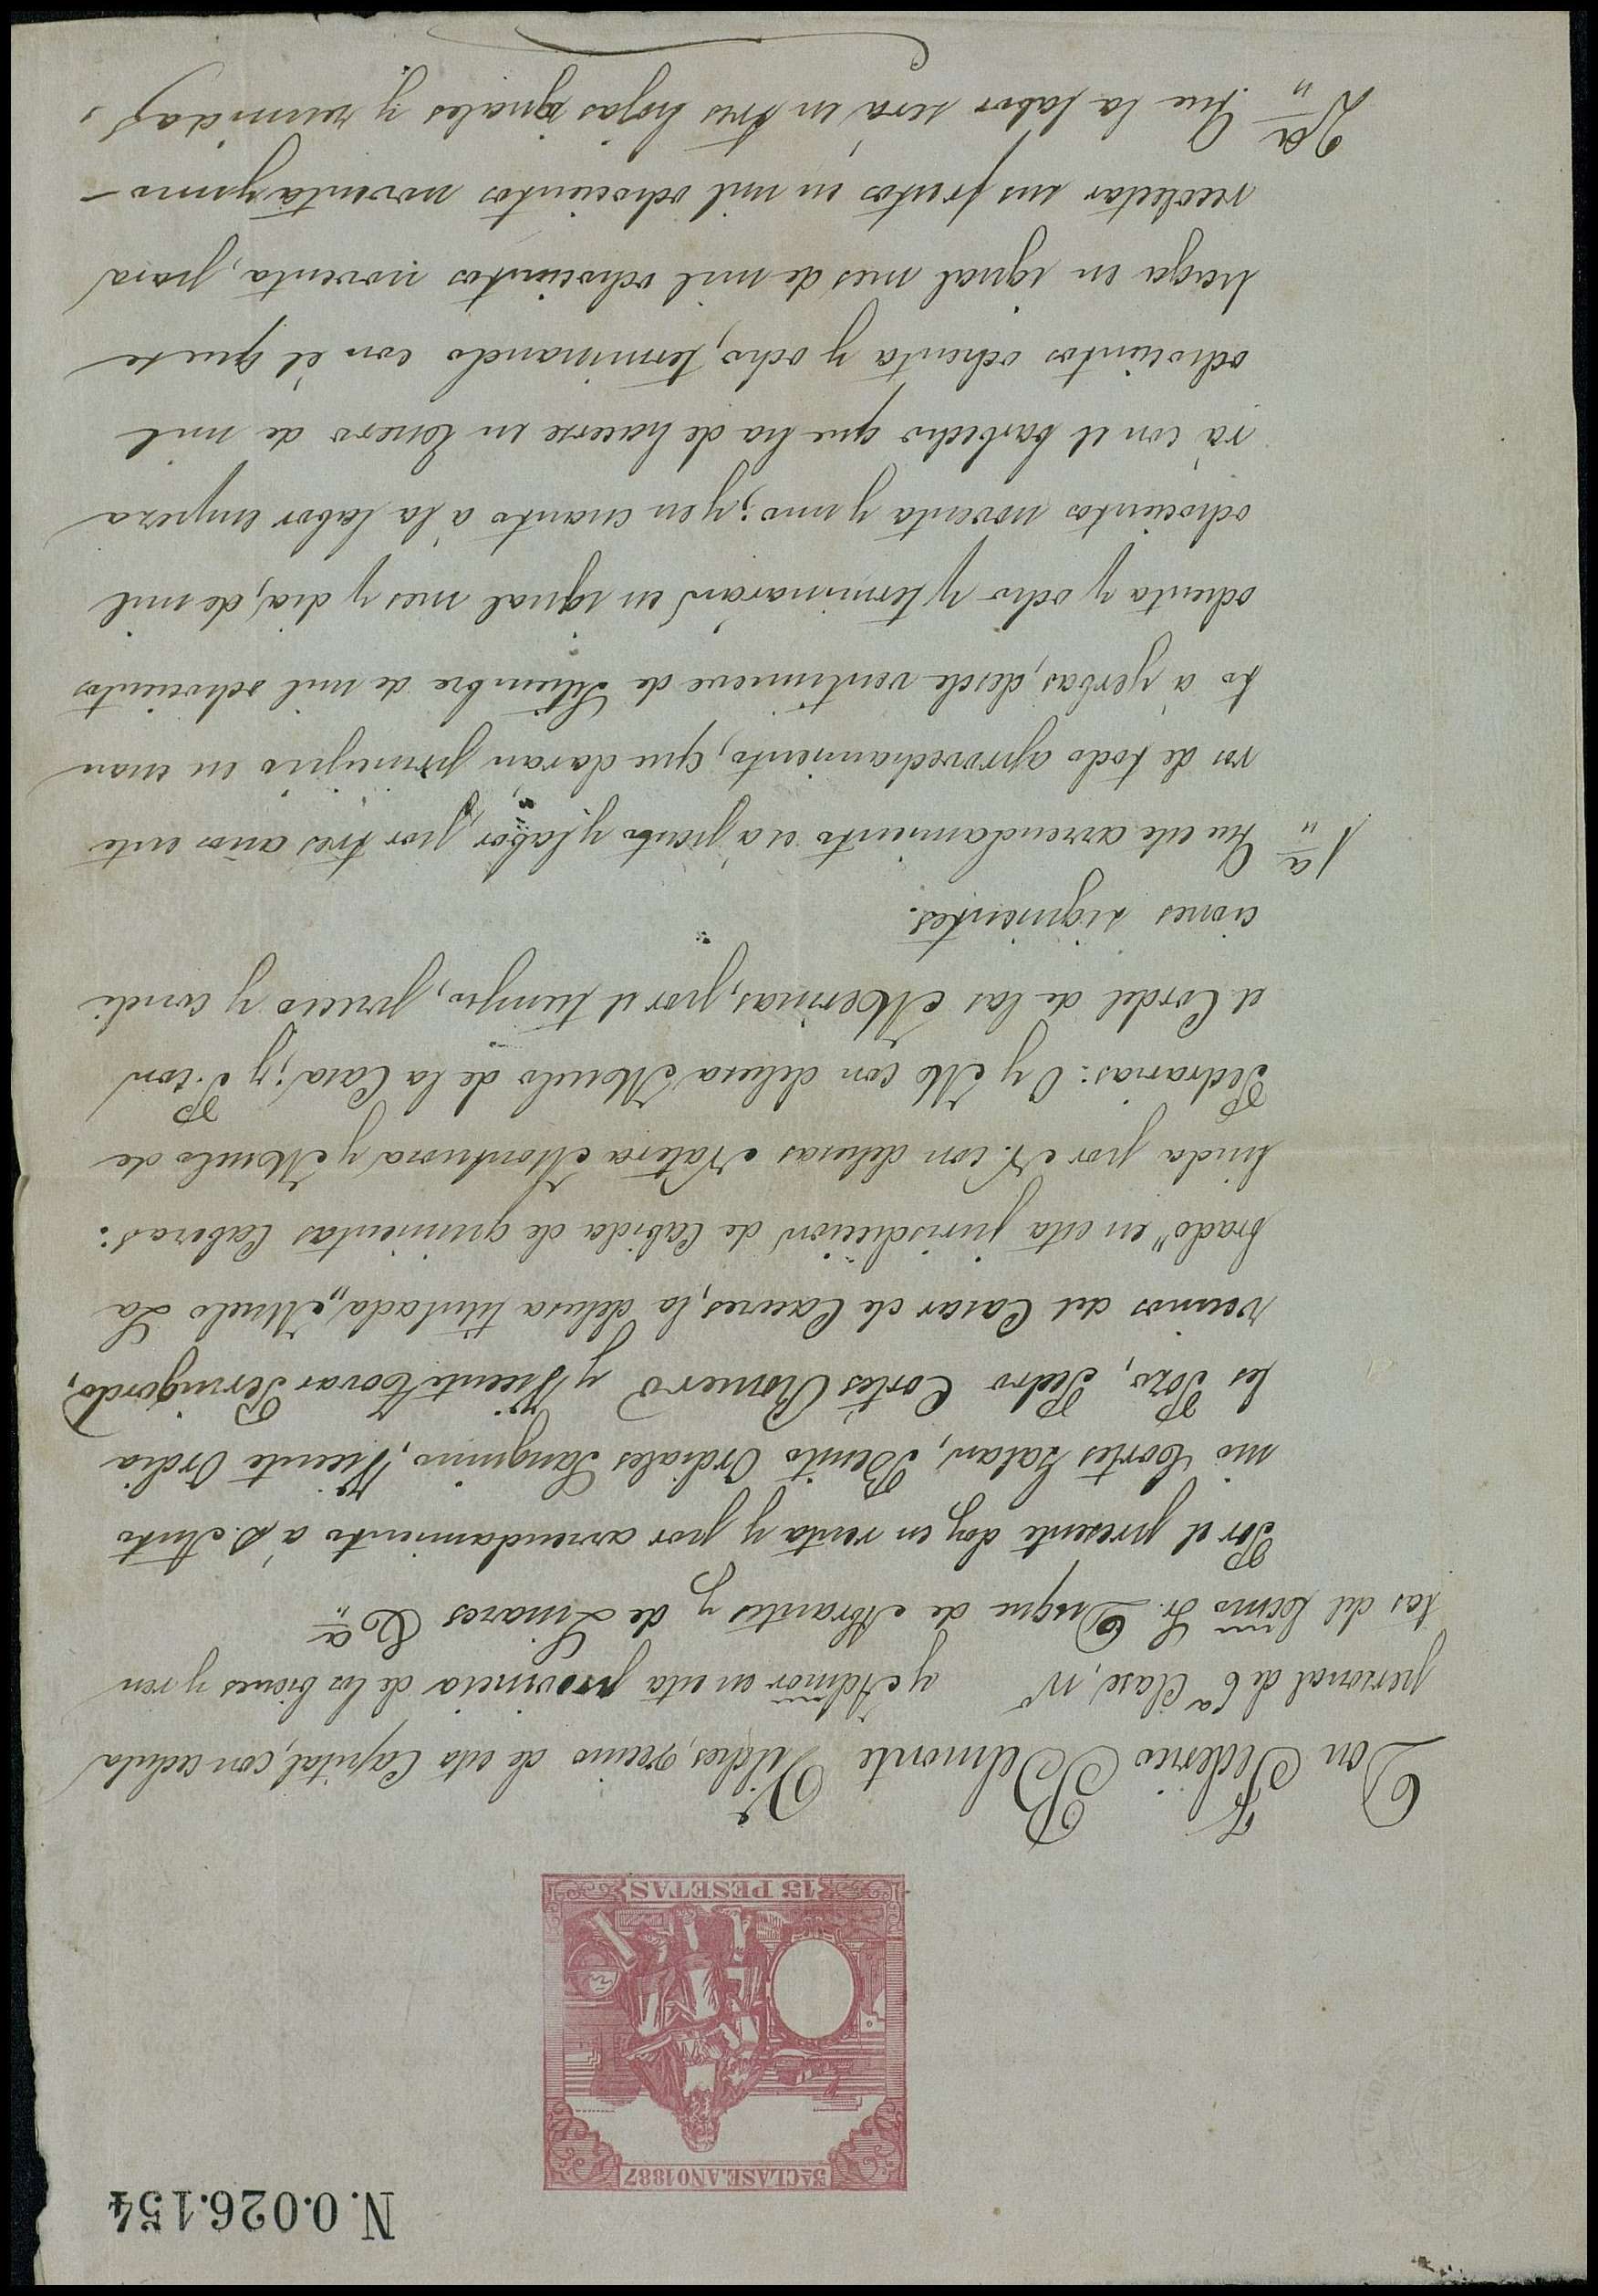 N. 0.026.154
5ª CLASE. AÑO 1887
15 PESETAS
Don Federico Belmonte Vilches, vecino de esta Capital, con cedula
personal de 6ª Clase, nº y Admor en esta provincia de los bienes y ren
tas del Excmo Sr. Duque de Abrantes y de Linares &ª
Por el presente doy en renta y por arrendamiento á D. Anto
nio Cortes Galan, Benito Ordiales Sanguino, Vicente Ordia
les Pozo, Pedro Cortés Romero y Vicente Tovar Peringordo,
vecinos del Casar de Caceres, la dehesa titulada, "Muelo La
brado" en esta jurisdiccion de Cabida de quinientas Caberas:
linda por N. con dehesas Natera Montuora y Muelo de
Pedrarias: O y M con dehesa Muelo de la Casa; y P. con
el Cordel de las Merinas, por el tiempo, precio y condi
ciones siguientes.
1ª Que este arrendamiento es a pasto y labor, por tres años ente
ros de todo aprovechamiento, que daran principio en cuan
to á yerbas, desde ventinueve de Setiembre de mil ochocientos
ochenta y ocho y terminarán en igual mes y dia, de mil
ochocientos noventa y uno; y en cuanto á la labor empeza
rá con el barbecho que ha de hacerse en Enero de mil
ochocientos ochenta y ocho, terminando con él que se
haga en igual mes de mil ochocientos noventa, para
recolectar sus frutos en mil ochocientos noventa y uno -
2ª Que la labor será en tres hojas iguales y reunidas,